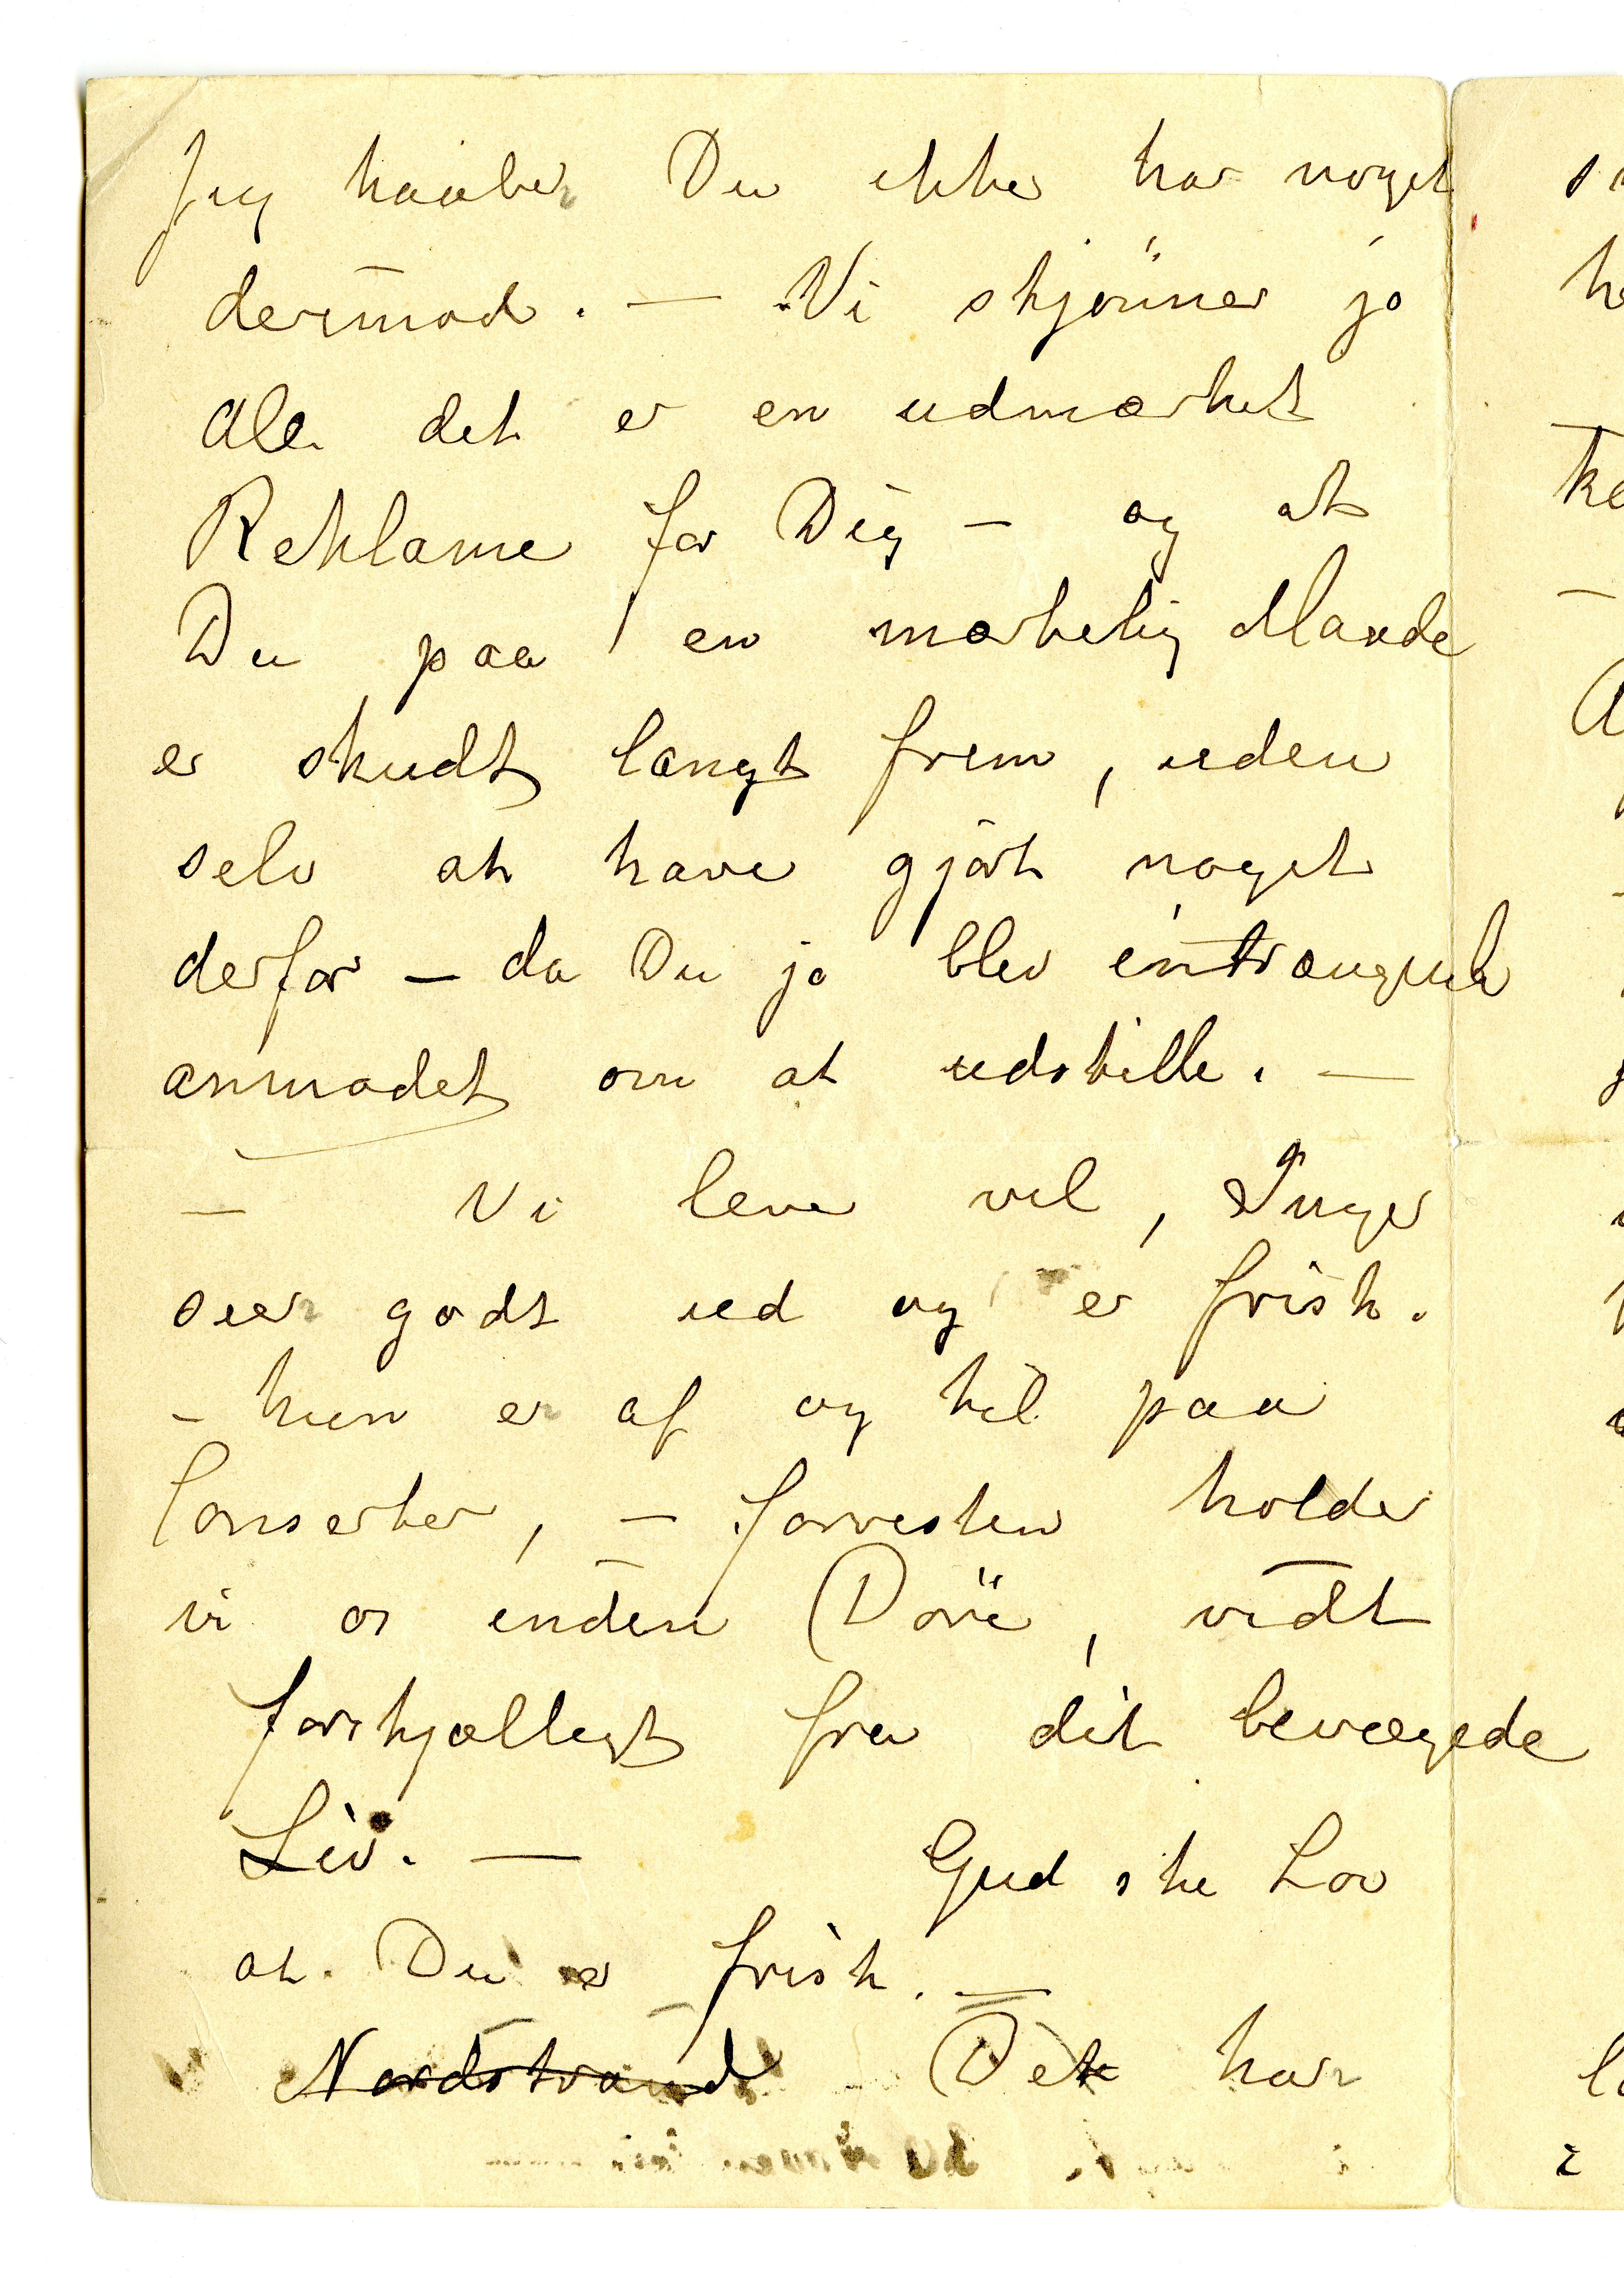 Jeg haaber Du ikke har noget
dermod. — Vi skjønner jo
alle det er en udmærket
Reklame for Dig — og at
Du paa en mærkelig Maade
er skudt langt frem, uden
selv at have gjørt noget
derfor — da Du jo blev intrængende
anmodet om at udstille. —
— Vi leve vel, Inger
seer godt ud og er frisk.
— hun er af og til paa
Conserter, — forresten holder
vi os inden Døre, vidt
forskjælligt fra dit bevægede
Liv. — Gud ske Lov
at Du er frisk. —
Nordstrand Det har